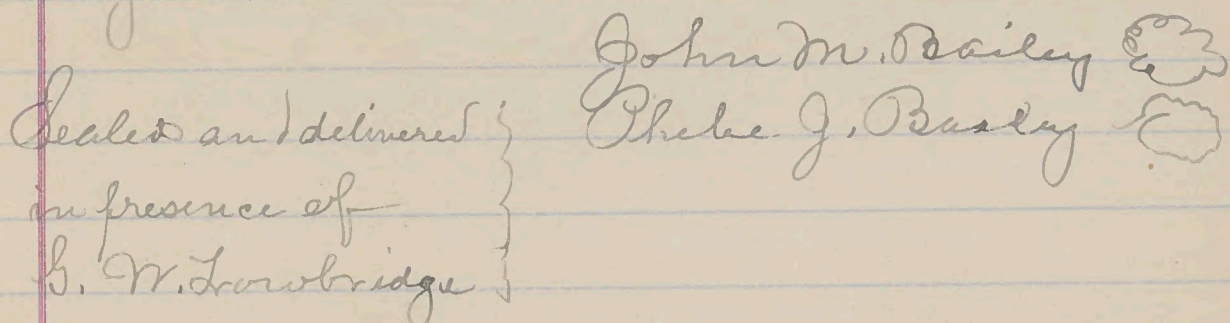 John M. Bailey
Phebe J. Bailey
Sealed and delivered
in presence of
G. W. Trowbridge